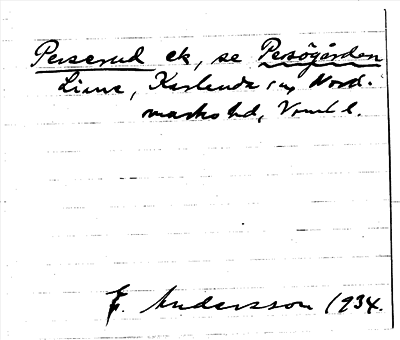 Perserud ek, se Persögården
Lime, Karlanda sn, Nord-
marks hd, Vrml l.
F. Andersson 1934.